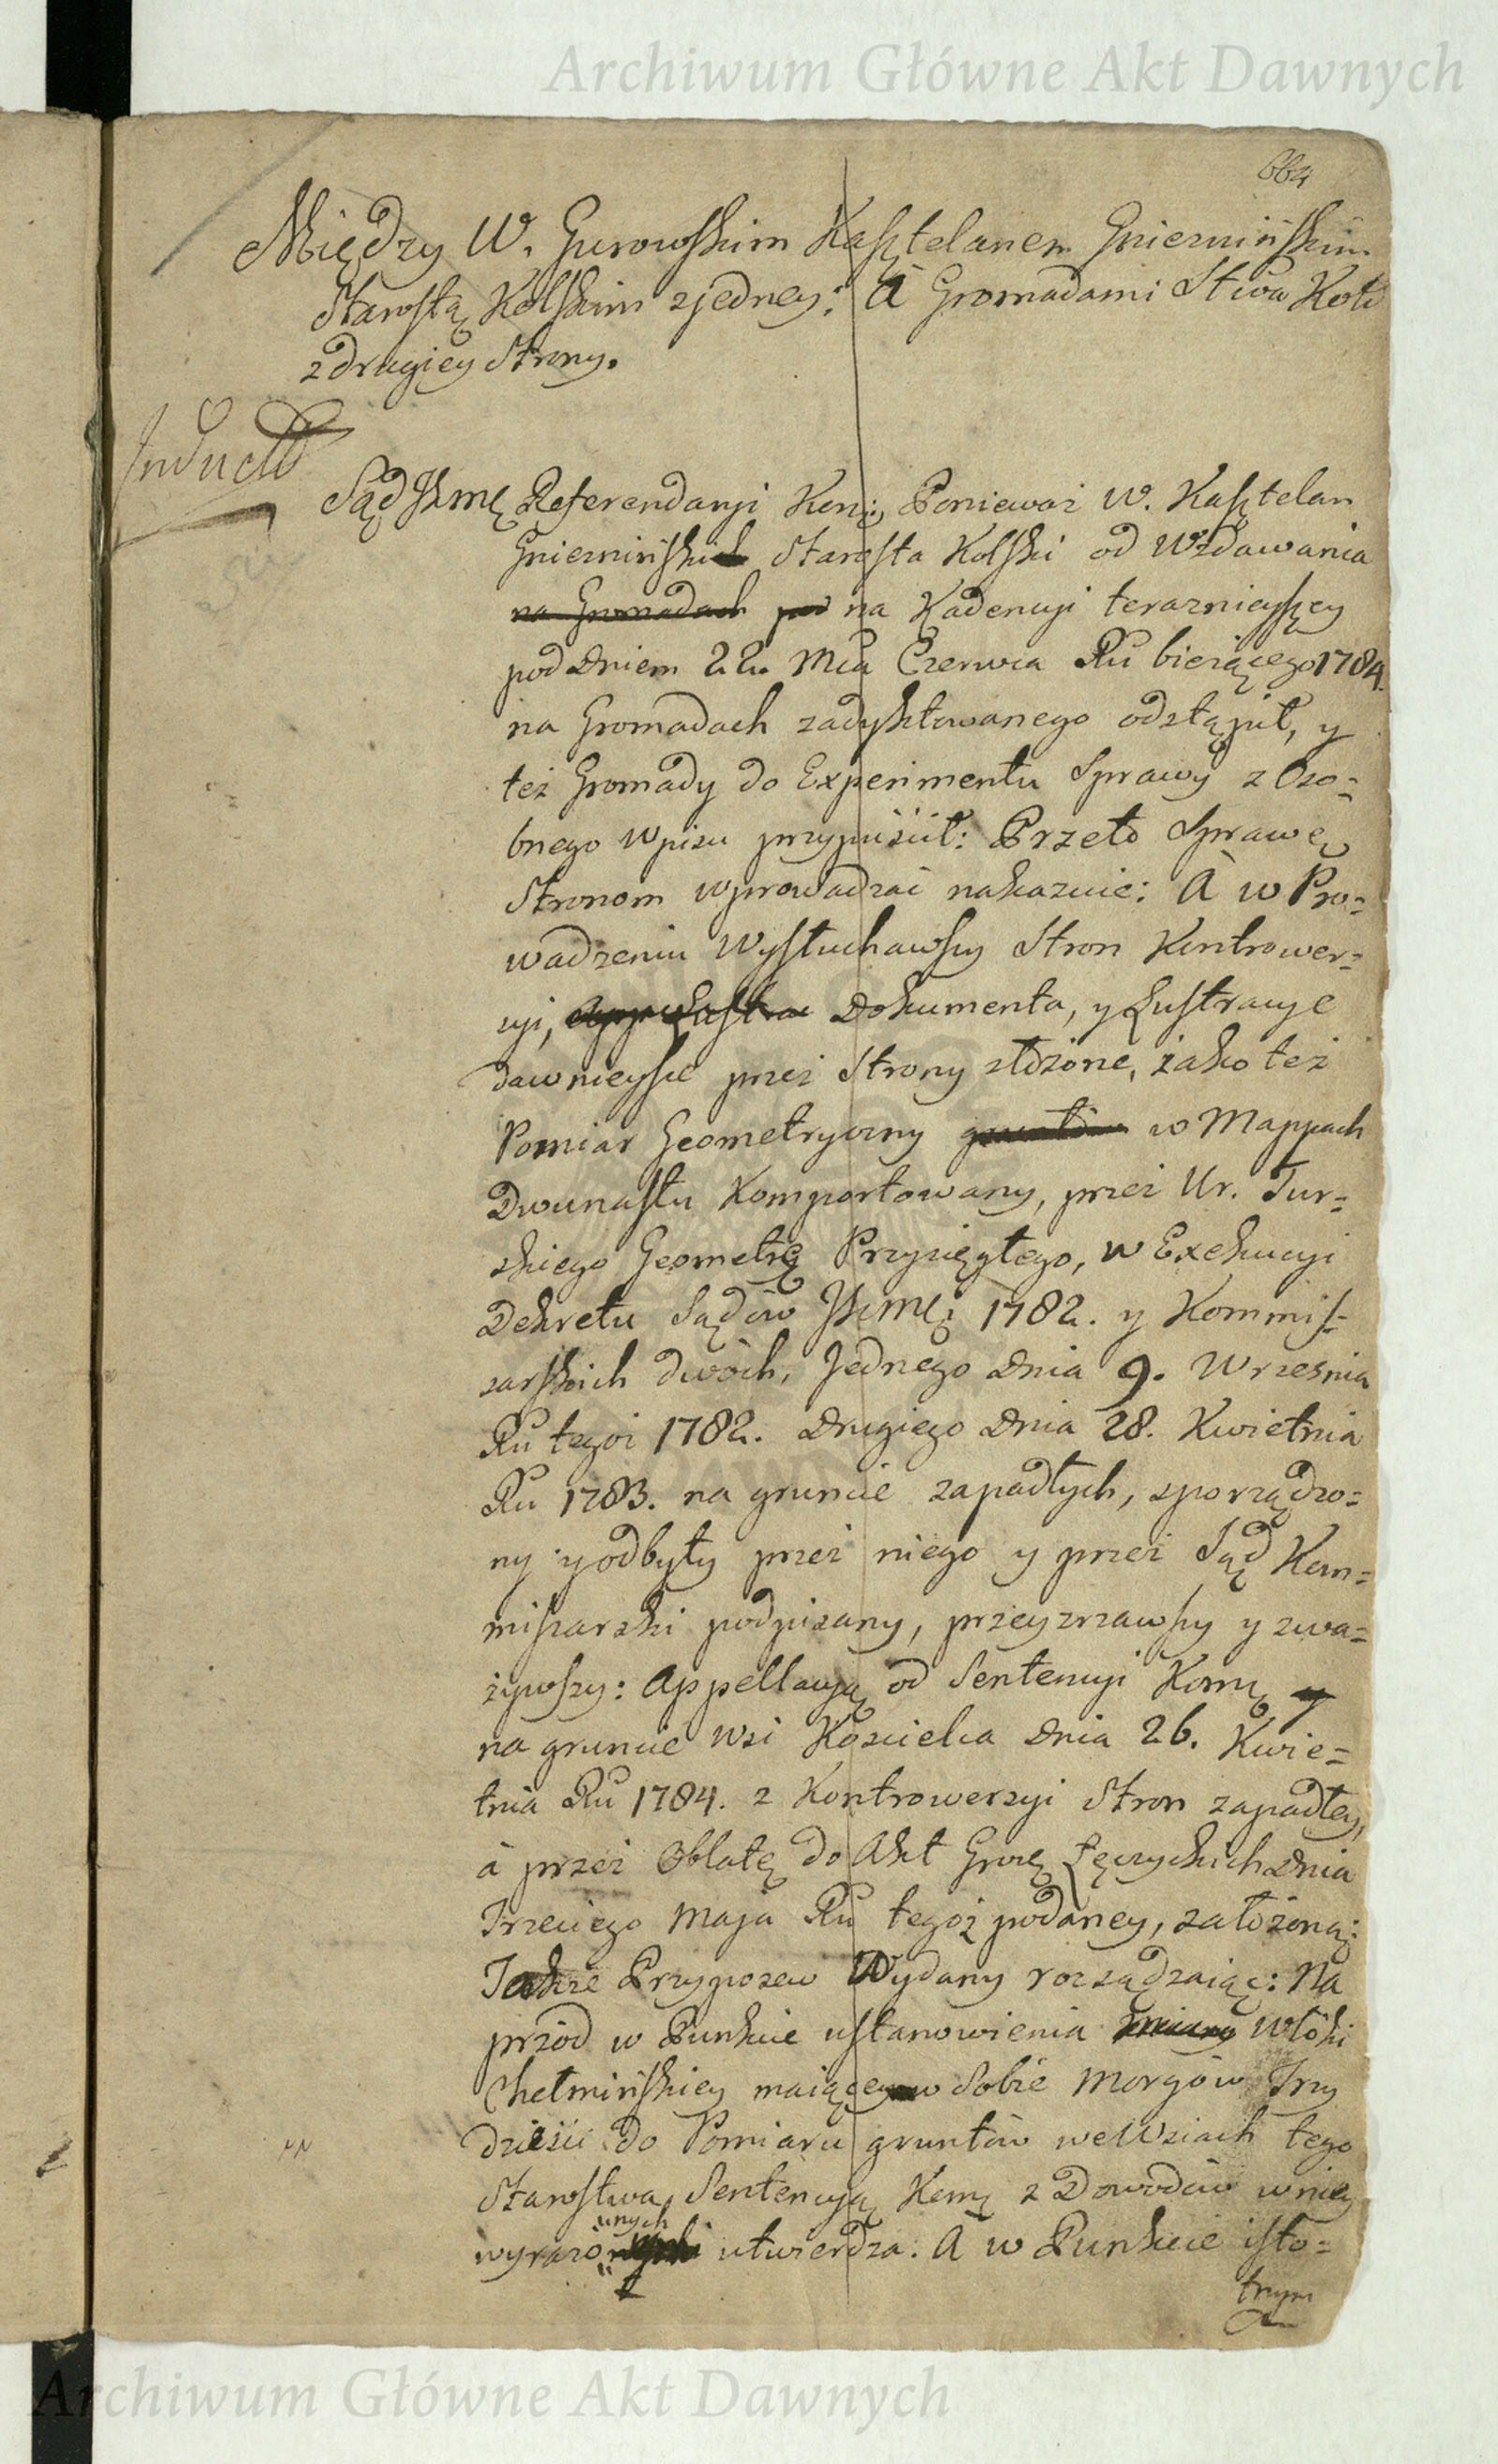 Archiwum Główne Akt Dawnych
664
Między W. Gurowskim Kasztelanem Gniezniński̇m
Starostą Kolskim z jedney: à Gromadami Stwa Koło
z drugiey Strony.
Induct
Sąd JKMCi Referendarji Kon: Ponieważ W. Kasztelan
Gniezniński Starosta Kolski od Wzdawania
na Gromadach na Kadencyi teraznieyszey
pod Dniem 22. Mca Czerwca Ru bieżącego 1784.
na Gromadach zadyktowanego odstąpił, y
też Gromady do Experimentu Sprawy z Oso=
bnego Wpisu przypuścił: Przeto Sprawę
Stronom wprowadzać nakazuie: A w Pro=
wadzeniu Wysłuchawszy Stron Kontrower=
syi, Dokumenta, y Lustracye
dawnieysze przez Strony złożone, iako też
Pomiar Geometryczny w Mappach
Dwunastu Komportowany, przez Ur. Tur=
skiego Geometrę Przysięgłego, w Exekucyi
Dekretu Sądów JKMCi 1782. y Kommis=
sarskich dwóch, Jednego Dnia 9. Wrzesnia
Ru tegoż 1782. Drugiego Dnia 28. Kwietnia
Ru 1783. na gruncie zapadłych, sporządzo=
ny y odbyty przez niego y przez Sąd Kom=
missarski podpisany, przeyzrzawszy y zwa=
żywszy: Appellacyą od Sentencyi Komy y
na gruncie Wsi Koscielca Dnia 26. Kwie=
tnia Ru 1784. z Kontrowersyi Stron zapadłey,
à przez Oblatę do Akt Grodz Łęczyckich Dnia
Trzeciego Maja Ru tegoż podaney, założoną;
Także Przypozew Wydany rozsądzaiąc: Na
przód w Punkcie ustanowienia Włóki
Chełmińskiey maiącey w Sobie Morgów Trzy
dzieści do Pomiaru gruntów we Wsiach tego
Starostwa, Sentencyą Komy z Dowodów w niey
wyrażonych utwierdza. A w Punkcie isto=
tnym
Archiwum Główne Akt Dawnych